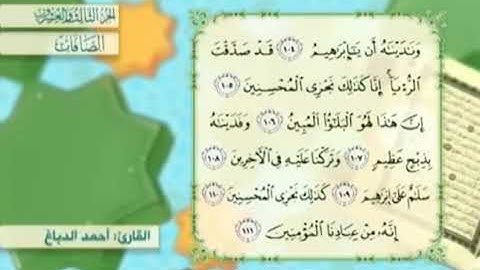 الجزء الثالث والعشرون
الصافات
وَنَٰدَيْنَٰهُ أَن يَٰٓإِبْرَٰهِيمُ ١٠٤ قَدْ صَدَّقْتَ
ٱلرُّءْيَآ ۚ إِنَّا كَذَٰلِكَ نَجْزِى ٱلْمُحْسِنِينَ ١٠٥
إِنَّ هَٰذَا لَهُوَ ٱلْبَلَٰٓؤُا۟ ٱلْمُبِينُ ١٠٦ وَفَدَيْنَٰهُ
بِذِبْحٍ عَظِيمٍ ١٠٧ وَتَرَكْنَا عَلَيْهِ فِى ٱلْءَاخِرِينَ ١٠٨
سَلَٰمٌ عَلَىٰٓ إِبْرَٰهِيمَ ١٠٩ كَذَٰلِكَ نَجْزِى ٱلْمُحْسِنِينَ ١١٠
إِنَّهُۥ مِنْ عِبَادِنَا ٱلْمُؤْمِنِينَ ١١١
القارئ: أحمد الدباغ